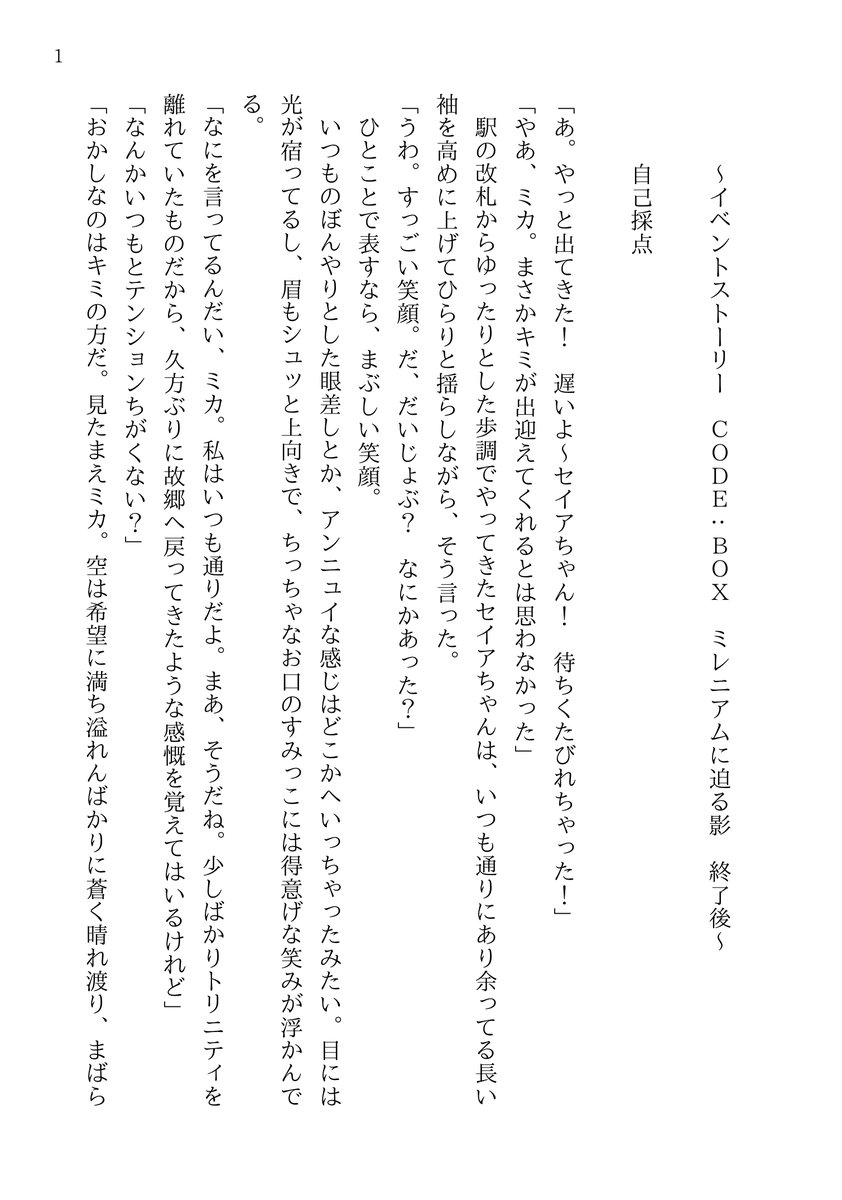 ～イベントストーリー　ＣＯＤＥ：ＢＯＸ　ミレニアムに迫る影　終了後～
自己採点
「あ。やっと出てきた！　遅いよ～セイアちゃん！　待ちくたびれちゃった！」
「やあ、ミカ。まさかキミが出迎えてくれるとは思わなかった」
　駅の改札からゆったりとした歩調でやってきたセイアちゃんは、いつも通りにあり余ってる長い
袖を高めに上げてひらりと揺らしながら、そう言った。
「うわ。すっごい笑顔。だ、だいじょぶ？　なにかあった？」
　ひとことで表すなら、まぶしい笑顔。
　いつものぼんやりとした眼差しとか、アンニュイな感じはどこかへいっちゃったみたい。目には
光が宿ってるし、眉もシュッと上向きで、ちっちゃなお口のすみっこには得意げな笑みが浮かんで
る。
「なにを言ってるんだい、ミカ。私はいつも通りだよ。まあ、そうだね。少しばかりトリニティを
離れていたものだから、久方ぶりに故郷へ戻ってきたような感慨を覚えてはいるけれど」
「なんかいつもとテンションちがくない？」
「おかしなのはキミの方だ。見たまえミカ。空は希望に満ち溢れんばかりに蒼く晴れ渡り、まばら
1